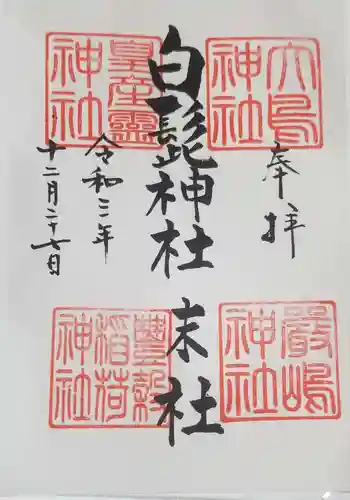 奉拝
大鳥神社
厳嶋神社
白髭神社
末社
皇産霊神社
豊穀稲荷神社
令和三年
十二月二十七日